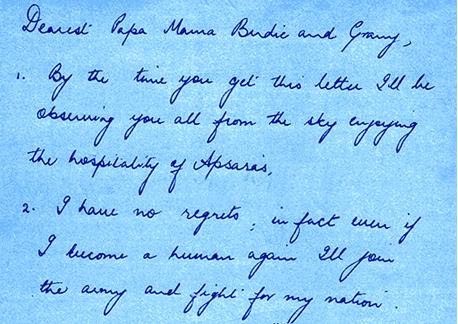 Dearest Papa Mama Birdie and Granny,
1. By the time you get this letter I'll be
observing you all from the sky enjoying
the hospitality of Apsaras,
2. I have no regrets, in fact even if
I become a human again I'll join
the army and fight for my nation.